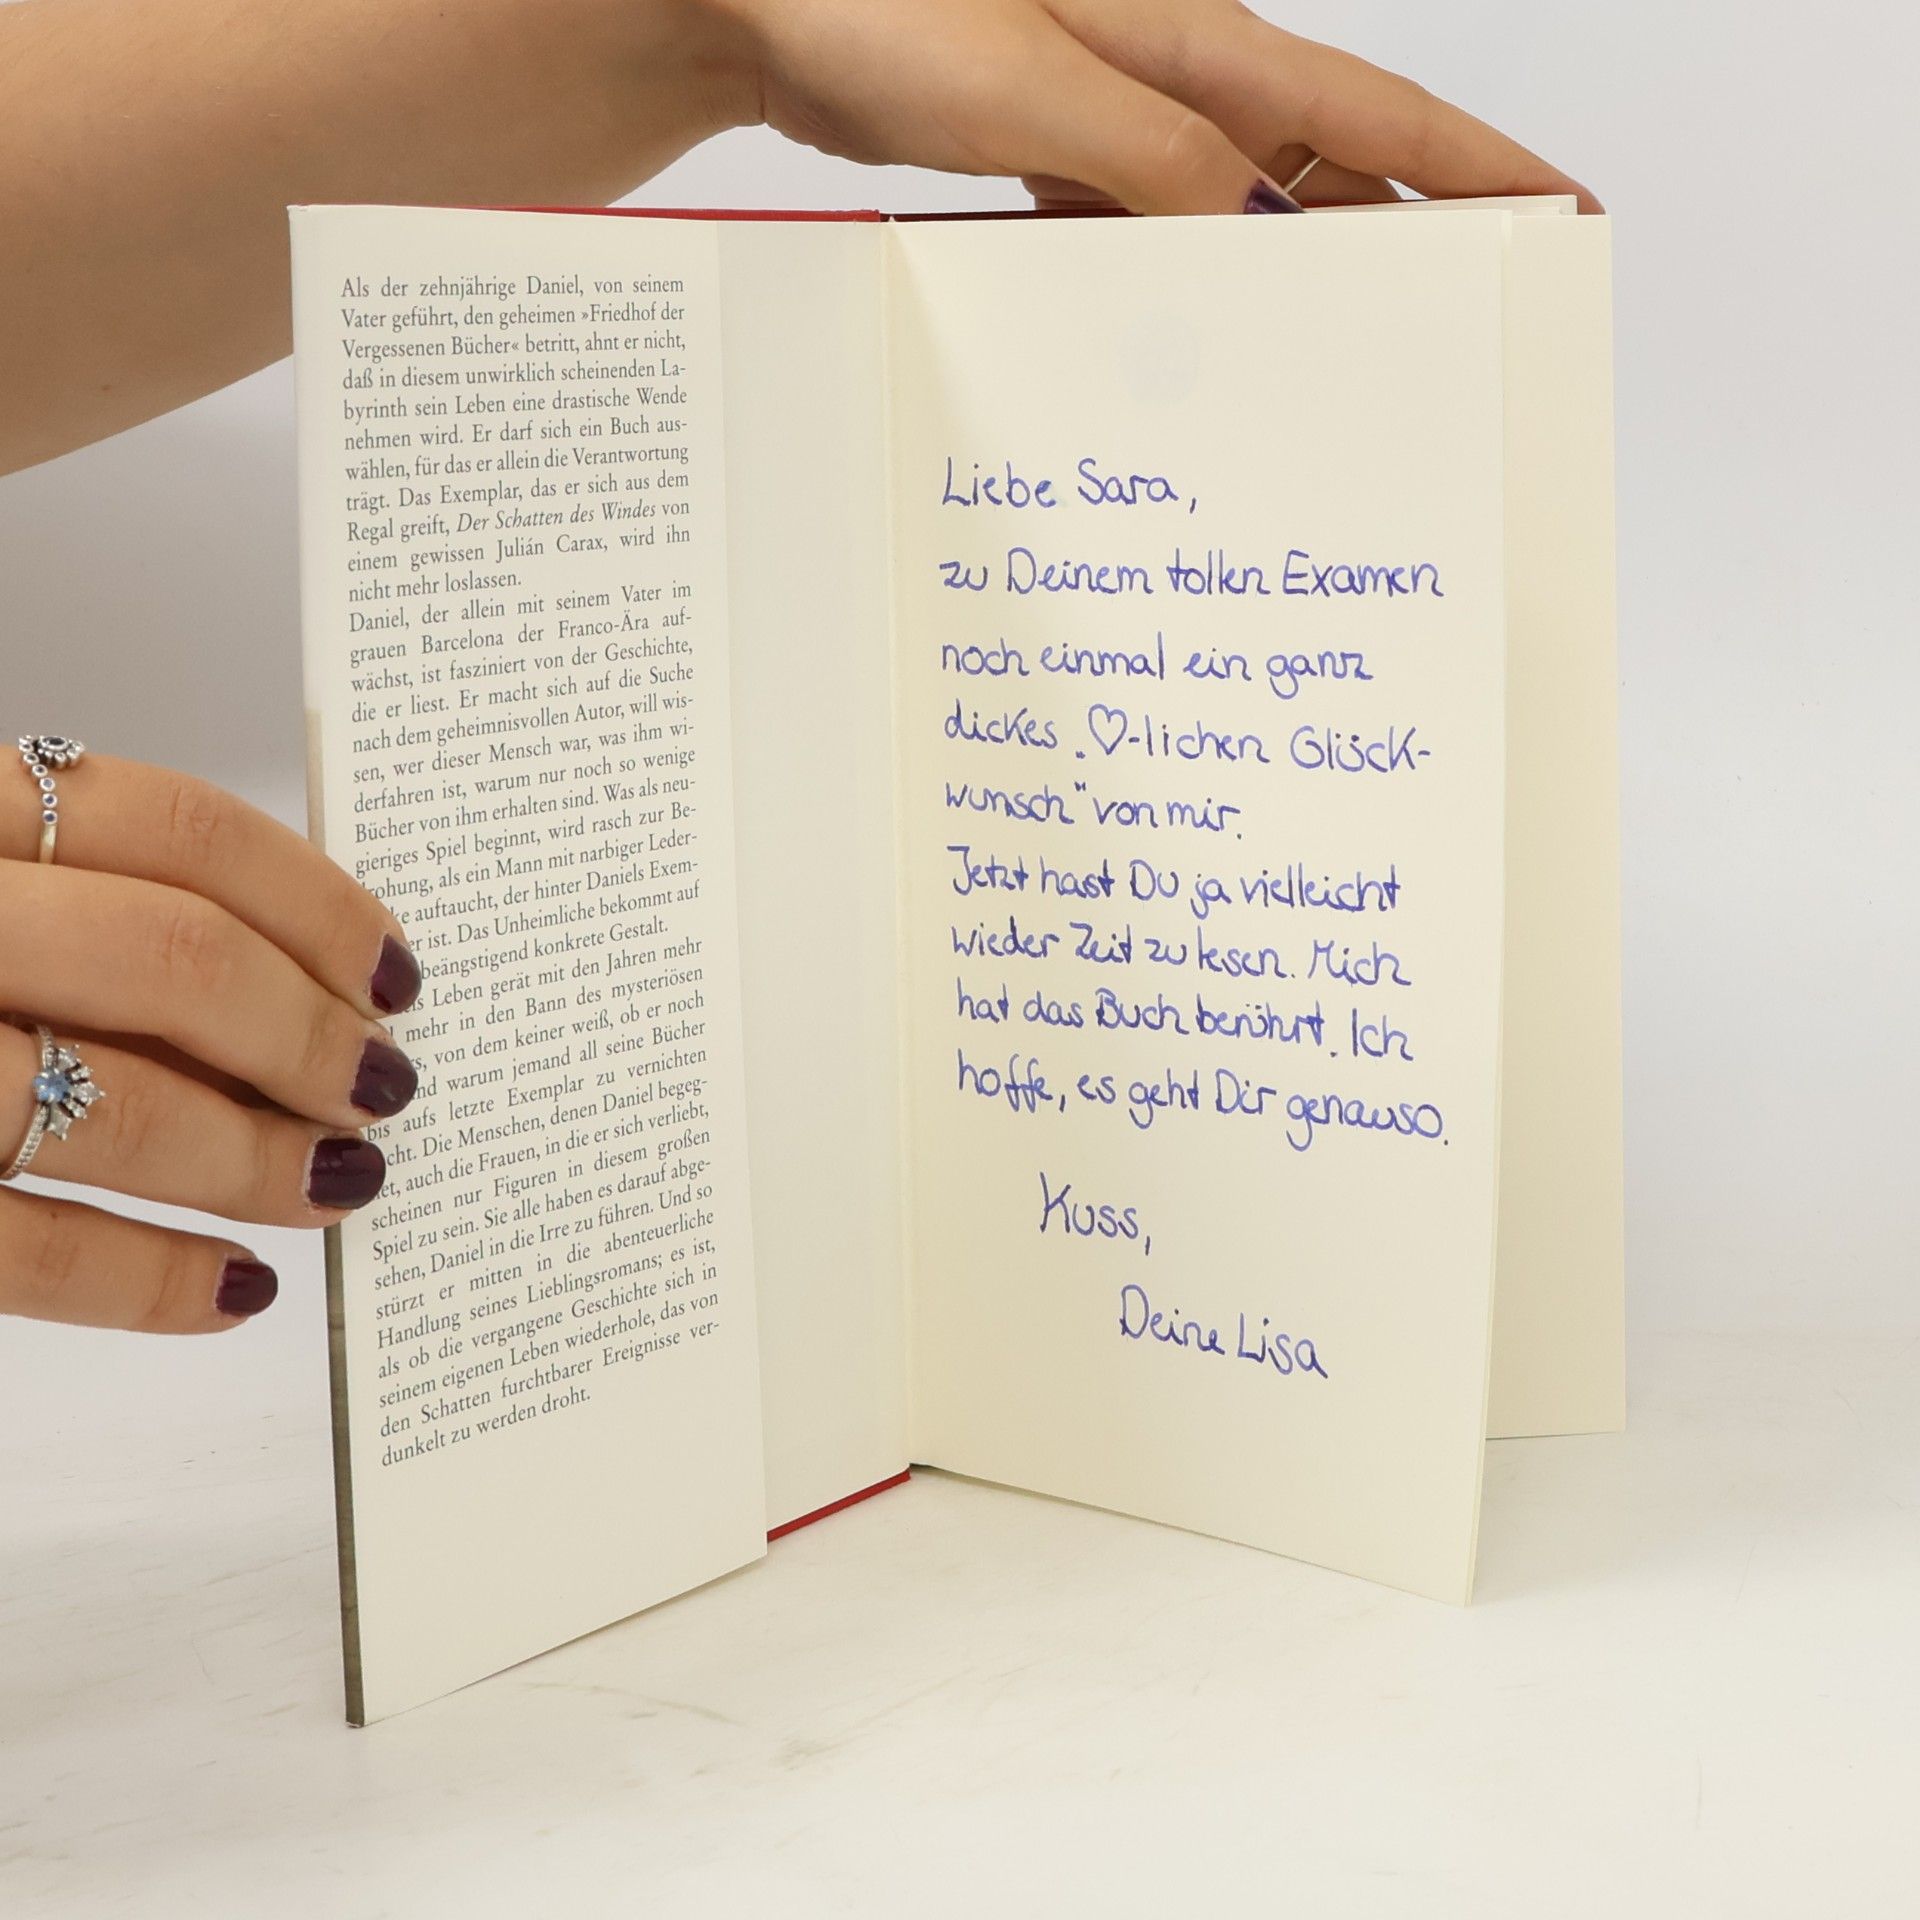 Als der zehnjährige Daniel, von seinem
Vater geführt, den geheimen »Friedhof der
Vergessenen Bücher« betritt, ahnt er nicht,
daß in diesem unwirklich scheinenden La-
byrinth sein Leben eine drastische Wende
nehmen wird. Er darf sich ein Buch aus-
wählen, für das er allein die Verantwortung
trägt. Das Exemplar, das er sich aus dem
Regal greift, Der Schatten des Windes von
einem gewissen Julián Carax, wird ihn
nicht mehr loslassen.
Daniel, der allein mit seinem Vater im
grauen Barcelona der Franco-Ära auf-
wächst, ist fasziniert von der Geschichte,
die er liest. Er macht sich auf die Suche
nach dem geheimnisvollen Autor, will wis-
sen, wer dieser Mensch war, was ihm wi-
derfahren ist, warum nur noch so wenige
Bücher von ihm erhalten sind. Was als neu-
gieriges Spiel beginnt, wird rasch zur Be-
rohung, als ein Mann mit narbiger Leder-
ke auftaucht, der hinter Daniels Exem-
er ist. Das Unheimliche bekommt auf
beängstigend konkrete Gestalt.
Leben gerät mit den Jahren mehr
mehr in den Bann des mysteriösen
von dem keiner weiß, ob er noch
nd warum jemand all seine Bücher
bis aufs letzte Exemplar zu vernichten
cht. Die Menschen, denen Daniel begeg-
et, auch die Frauen, in die er sich verliebt,
scheinen nur Figuren in diesem großen
Spiel zu sein. Sie alle haben es darauf abge-
sehen, Daniel in die Irre zu führen. Und so
stürzt er mitten in die abenteuerliche
Handlung seines Lieblingsromans; es ist,
als ob die vergangene Geschichte sich in
seinem eigenen Leben wiederhole, das von
den Schatten furchtbarer Ereignisse ver-
dunkelt zu werden droht.
Liebe Sara,
zu Deinem tollen Examen
noch einmal ein ganz
dickes „♡-lichen Glück-
wunsch" von mir.
Jetzt hast Du ja vielleicht
wieder Zeit zu lesen. Mich
hat das Buch berührt. Ich
hoffe, es geht Dir genauso.
Kuss,
Deine Lisa